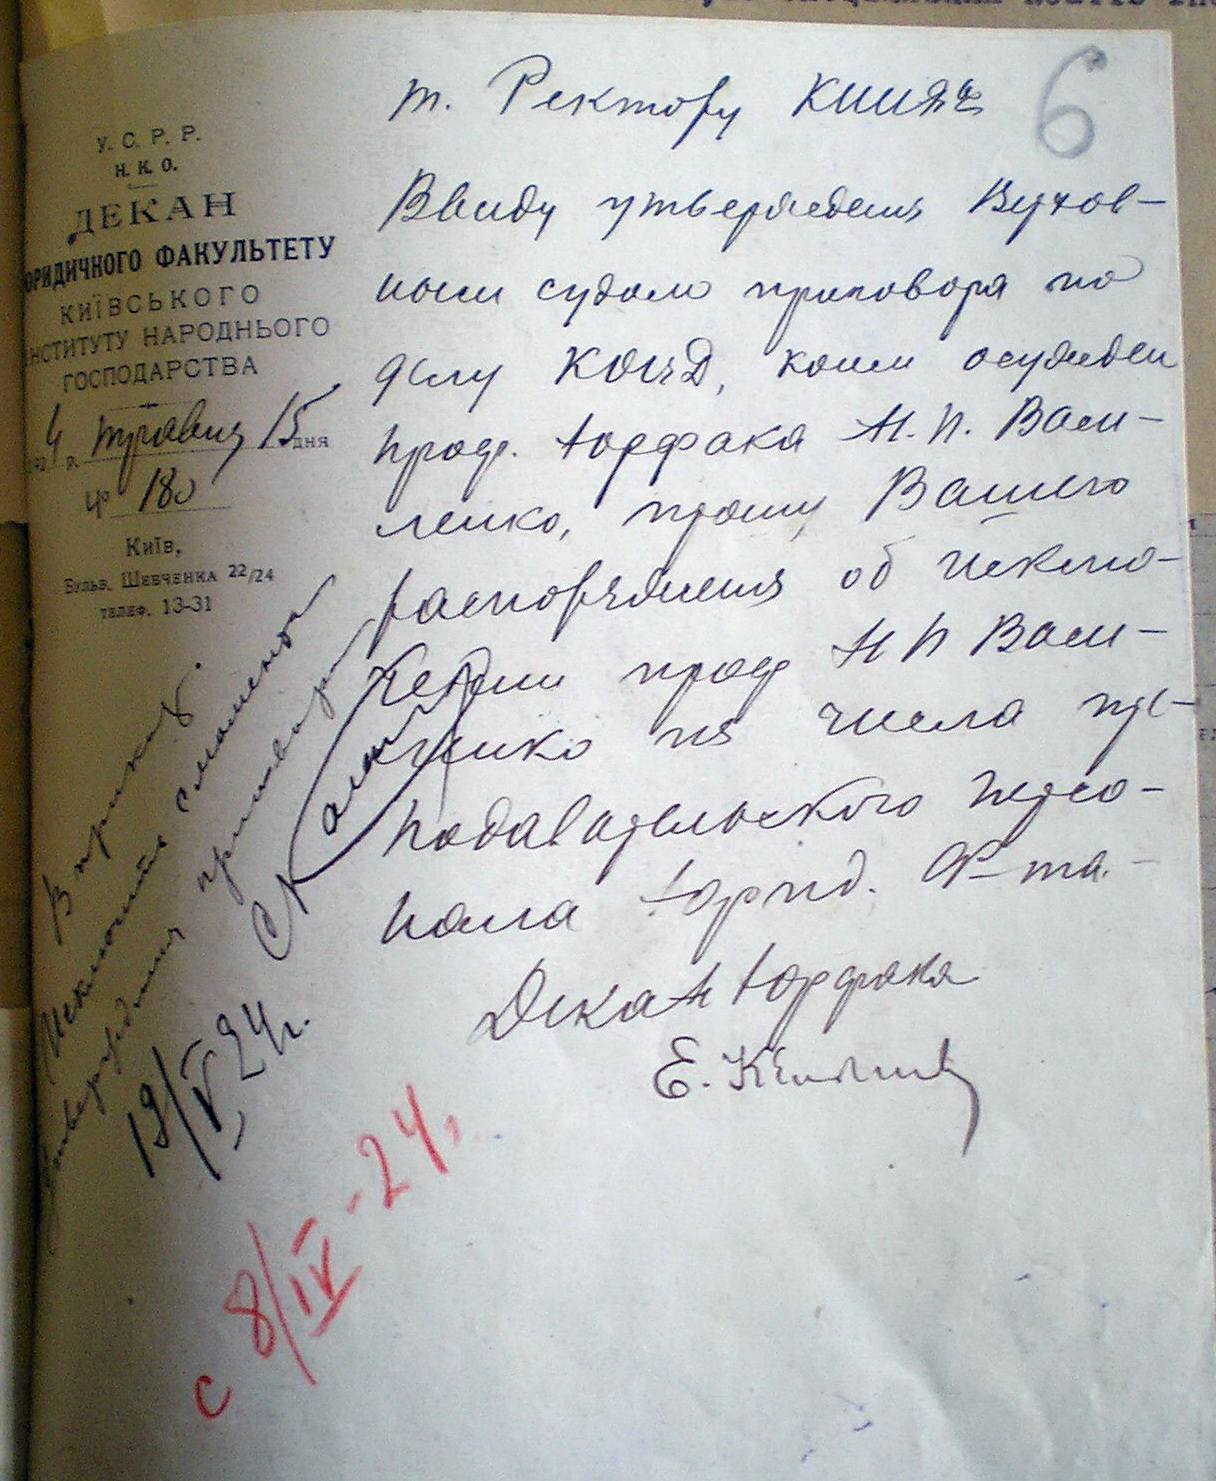 6
У. С. Р. Р.
Н. К. О.
ДЕКАН
ЮРИДИЧНОГО ФАКУЛЬТЕТУ
КИЇВСЬКОГО
ІНСТИТУТУ НАРОДНЬОГО
ГОСПОДАРСТВА
4 р. травня 15 дня
Чº 180
Київ,
Бульв. Шевченка 22/24
телеф. 13-31
т. Ректору
Ввиду утверждения Верхов-
ным судом приговора по
делу КОЦД, коим осужден
проф. Юрфака Н. П. Васи-
ленко, прошу Вашего
распоряжения об исклю-
чении проф Н П Васи-
ленко из числа пре-
подавательского персо-
нала Юрид. Ф-та.
Декан Юрфака
Е.
В приказ.
Исключить с момента
утверждения приговора
19/V 24г.
с 8/IV - 24.